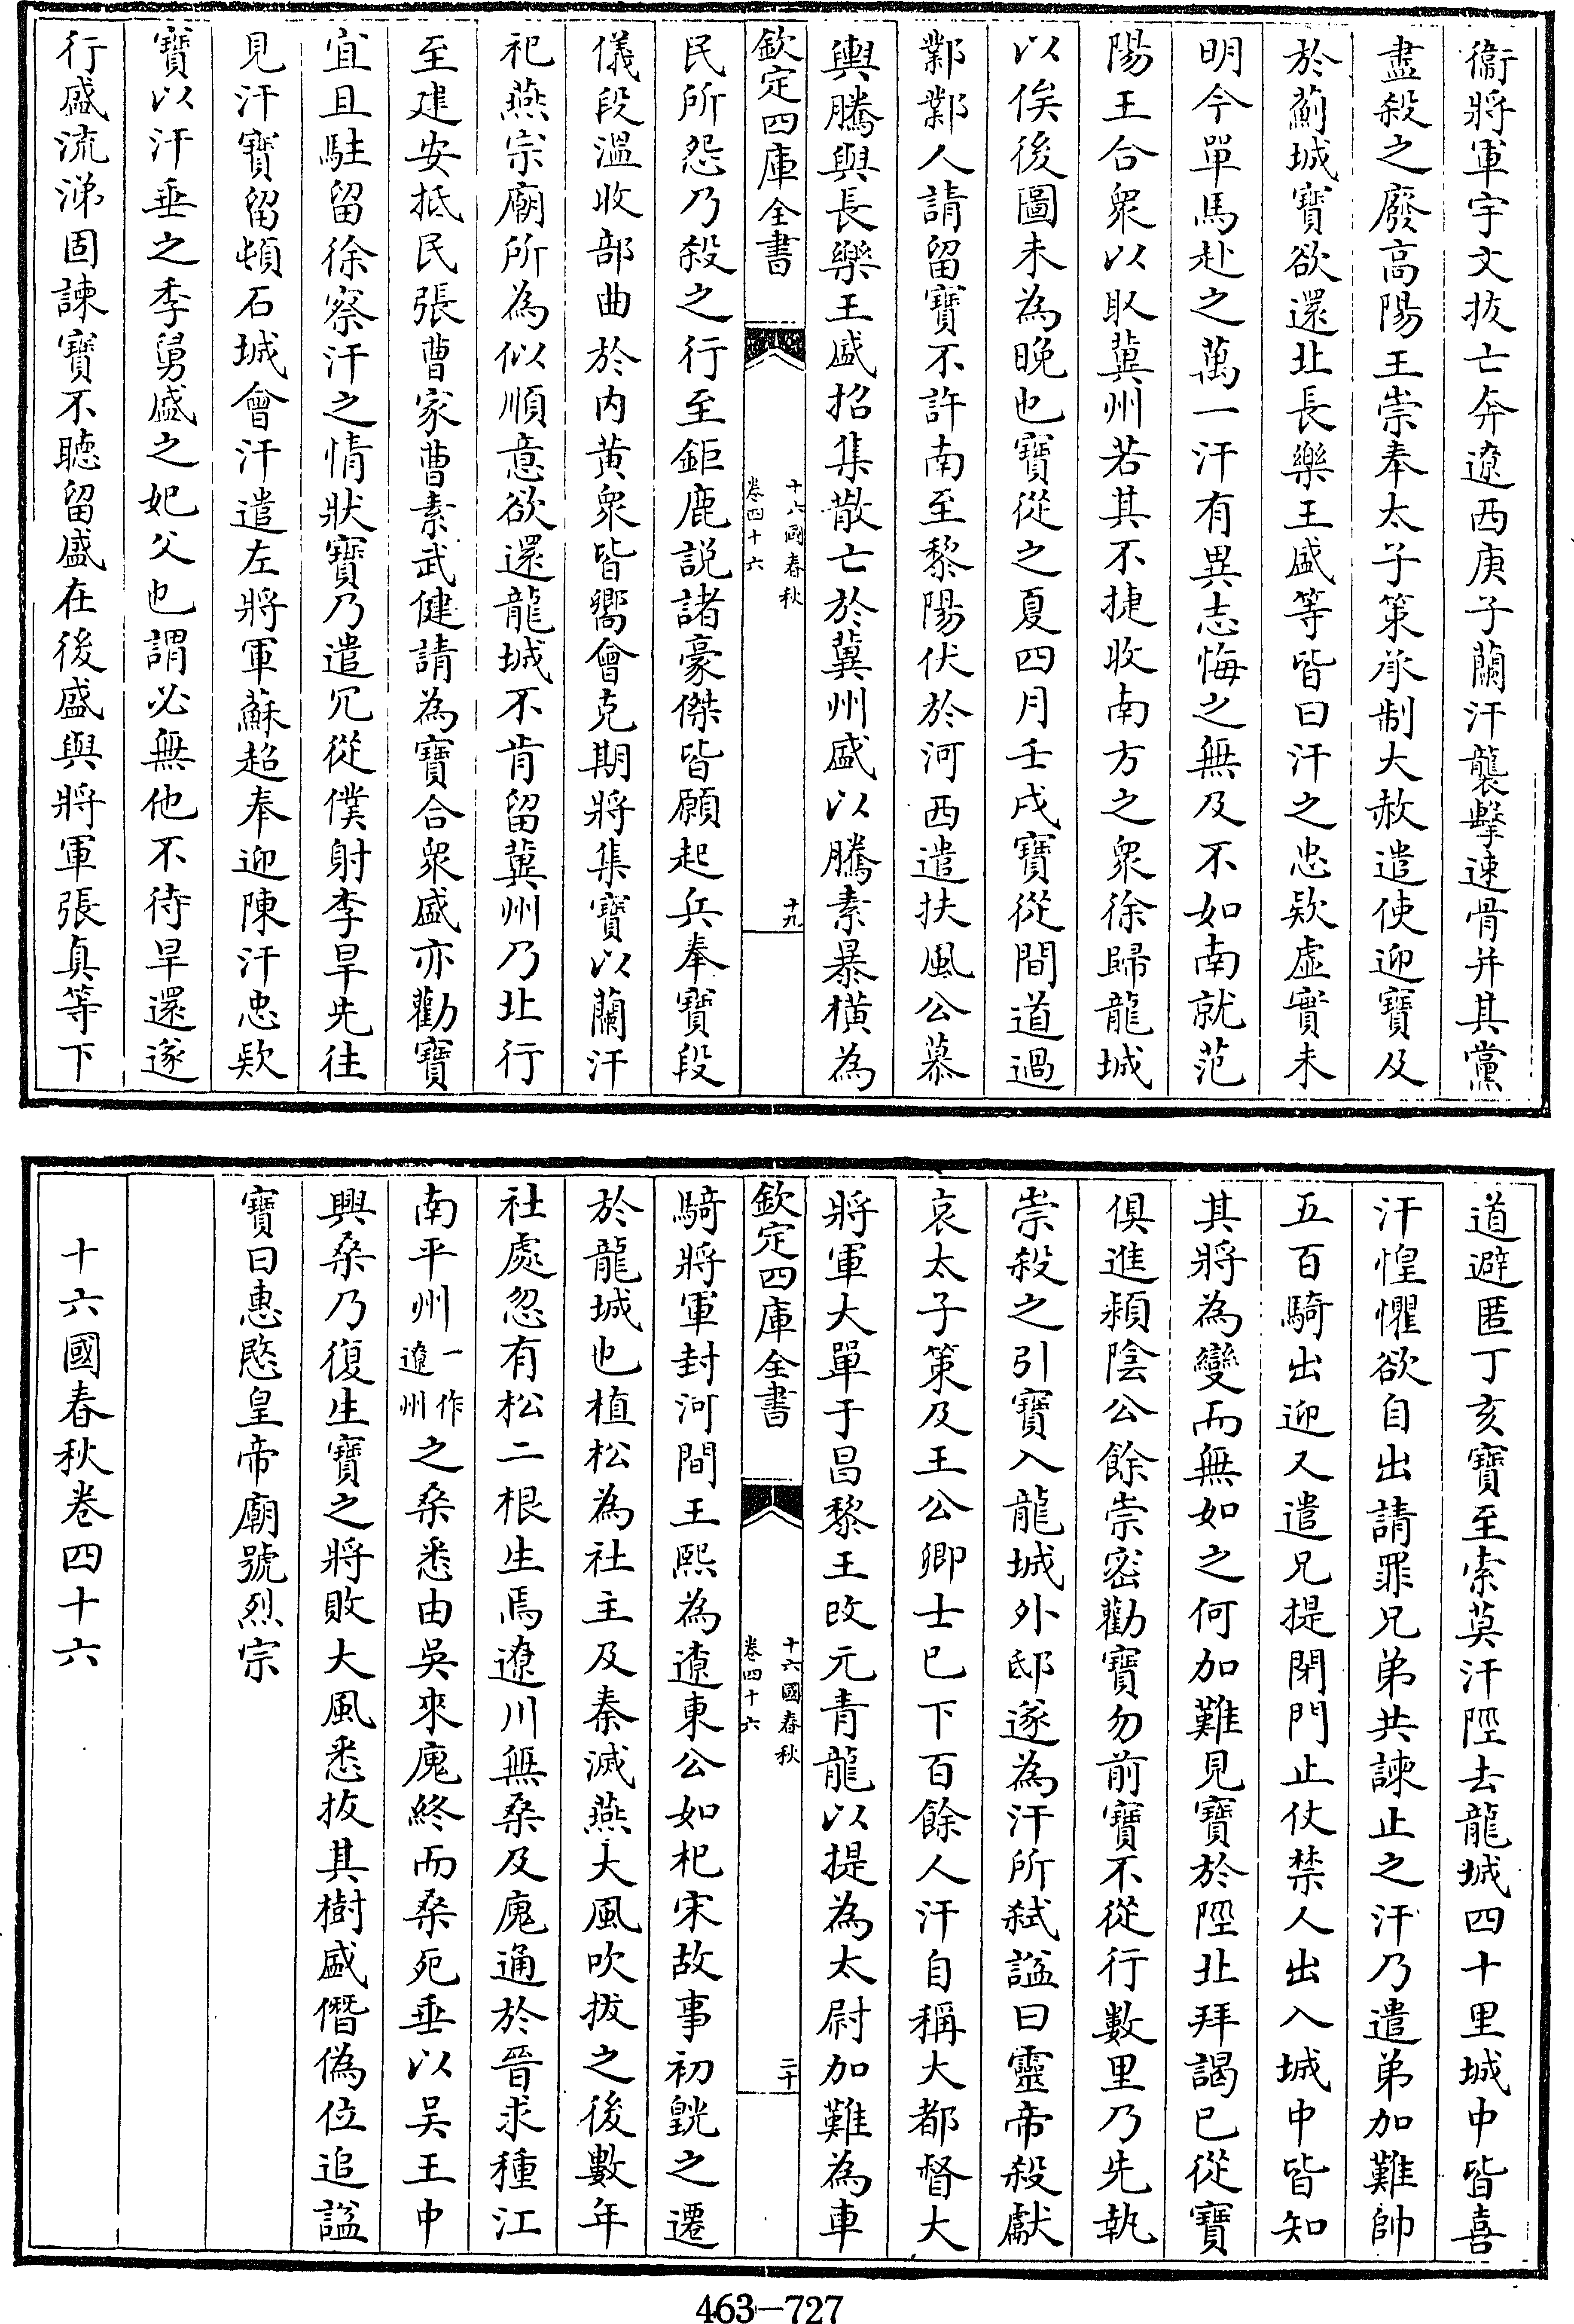 衞將軍宇文拔亡奔遼西庚子蘭汗襲擊速骨并其黨
盡殺之廢高陽王崇奉太子策承制大赦遣使迎寶及
於薊城寶欲還北長樂王盛等皆曰汗之忠欵虛實未
明今單馬赴之萬一汗有異志悔之無及不如南就范
陽王合衆以取冀州若其不捷收南方之衆徐歸龍城
以俟後圖未為晚也寶從之夏四月壬戌寶從間道過
鄴鄴人請留寶不許南至黎陽伏於河西遣扶風公慕
輿騰與長樂王盛招集散亡於冀州盛以騰素暴橫為
欽定四庫全書
十六國春秋
卷四十六
十九
民所怨乃殺之行至鉅鹿説諸豪傑皆願起兵奉寶段
儀段溫收部曲於内黄衆皆嚮會克期將集寶以蘭汗
祀燕宗廟所為似順意欲還龍城不肯留冀州乃北行
至建安抵民張曹家曹素武健請為寶合衆盛亦勸寶
宜且駐留徐察汗之情狀寶乃遣冗從僕射李旱先往
見汗寶留頓石城會汗遣左將軍蘇超奉迎陳汗忠欵
寶以汗垂之季舅盛之妃父也謂必無他不待旱還遂
行盛流涕固諫寶不聽留盛在後盛與將軍張真等下
道避匿丁亥寶至索莫汗陘去龍城四十里城中皆喜
汗惶懼欲自出請罪兄弟共諫止之汗乃遣弟加難帥
五百騎出迎又遣兄提閉門止仗禁人出入城中皆知
其將為變而無如之何加難見寶於陘北拜謁已從寶
俱進潁陰公餘崇密勸寶勿前寶不從行數里乃先執
崇殺之引寶入龍城外邸遂為汗所弑諡曰靈帝殺獻
哀太子策及王公卿士已下百餘人汗自稱大都督大
將軍大單于昌黎王改元青龍以提為太尉加難為車
欽定四庫全書
十六國春秋
卷四十六
二十
騎將軍封河間王熙為遼東公如杞宋故事初皝之遷
於龍城也植松為社主及秦滅燕大風吹拔之後數年
社處忽有松二根生焉遼川無桑及廆通於晉求種江
南平州一作遼州之桑悉由吳來廆終而桑死垂以吴王中
興桑乃復生寶之將敗大風悉拔其樹盛僭偽位追諡
寶曰惠愍皇帝廟號烈宗
十六國春秋卷四十六
463—727